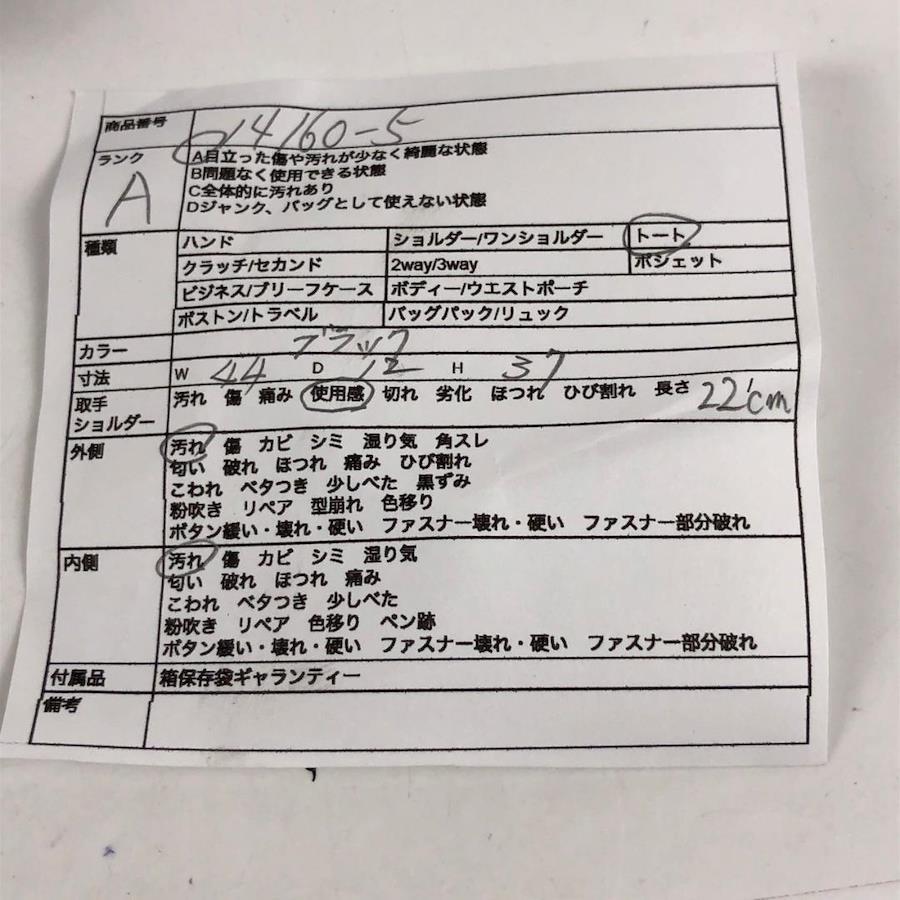 商品番号 014160-5
ランク A A目立った傷や汚れが少なく綺麗な状態
B問題なく使用できる状態
C全体的に汚れあり
Dジャンク、バッグとして使えない状態
種類 ハンド ショルダー/ワンショルダー トート
クラッチ/セカンド 2way/3way ポシェット
ビジネス/ブリーフケース ボディー/ウエストポーチ
ボストン/トラベル バッグパック/リュック
カラー ブラック
寸法 W 44 D 12 H 37
取手 ショルダー 汚れ 傷 痛み 使用感 切れ 劣化 ほつれ ひび割れ 長さ 22cm
外側 汚れ 傷 カビ シミ 湿り気 角スレ
匂い 破れ ほつれ 痛み ひび割れ
こわれ ベタつき 少しべた 黒ずみ
粉吹き リペア 型崩れ 色移り
ボタン緩い・壊れ・硬い ファスナー壊れ・硬い ファスナー部分破れ
内側 汚れ 傷 カビ シミ 湿り気
匂い 破れ ほつれ 痛み
こわれ ベタつき 少しべた
粉吹き リペア 色移り ペン跡
ボタン緩い・壊れ・硬い ファスナー壊れ・硬い ファスナー部分破れ
付属品 箱保存袋ギャランティー
備考